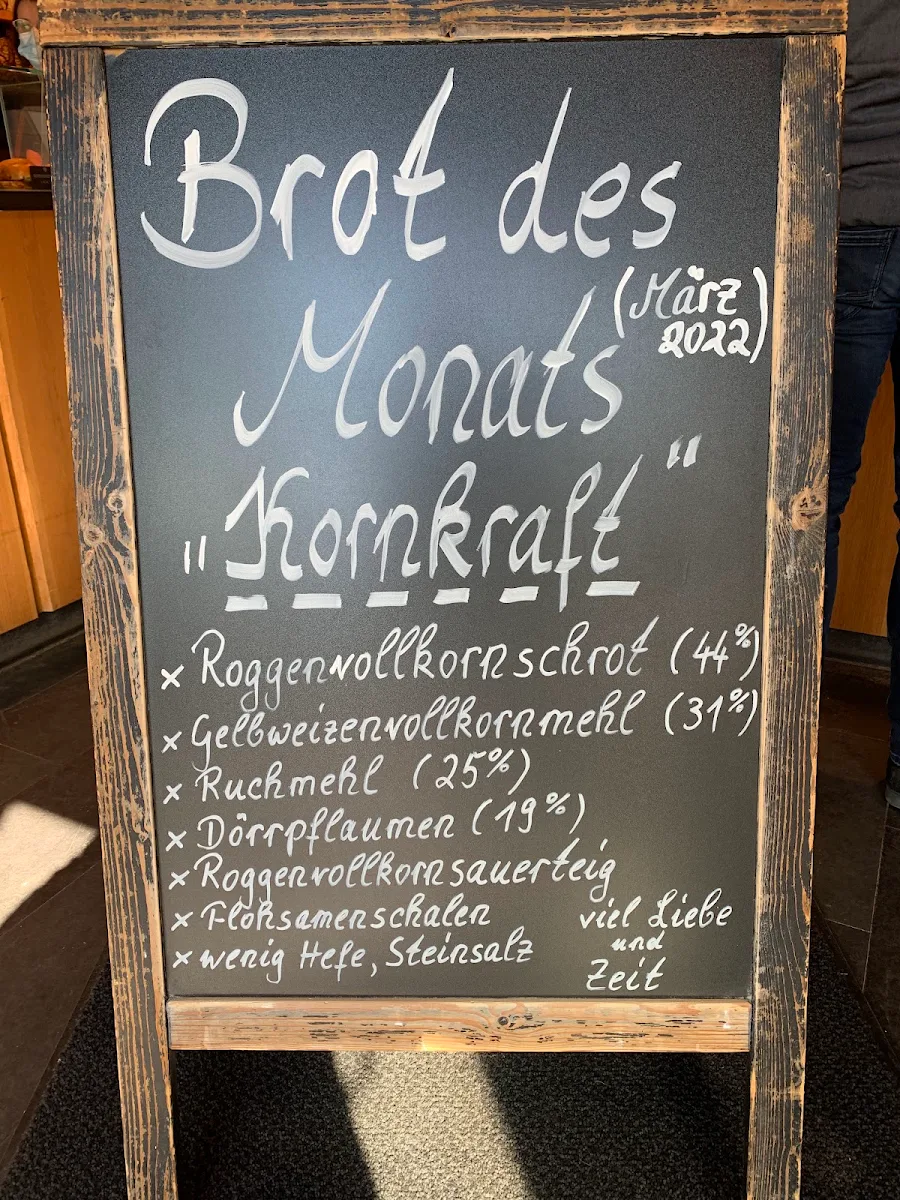 Brot des
Monats
(März
2022)
"Kornkraft"
x Roggenvollkornschrot (44%)
x Gelbweizenvollkornmehl (31%)
x Ruchmehl (25%)
x Dörrpflaumen (19%)
x Roggenvollkornsauerteig
x Flohsamenschalen
x wenig Hefe, Steinsalz
viel Liebe
und
Zeit